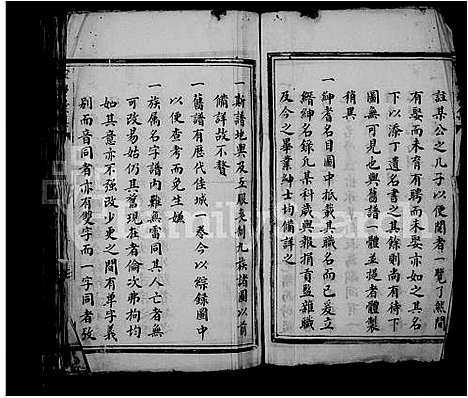 註某公之几子以便閱者一覽了然間
有娶而未育有聘而未娶亦如之其名
下以添丁遺名書之其餘則尚有待下
圖無可見也與舊譜一體並提者體製
稍異
一紳耆名目圖中祇載其職名而已爰立
縉紳名錄凡某科歲與報捐貢監雜職
及今之畢業紳士均備詳之
一新譜地輿及五服喪制九族諸圖以前
備詳故不贅
一舊譜有歷代佳城一卷今以綜錄圖中
以便查考而免生嫌
一族屬名字譜內難無雷同其人亡者無
可改易姑仍其舊現在者倫次弗拘均
如其意亦不強改少更之間有單字義
別而音同者亦有雙字而一字同者故